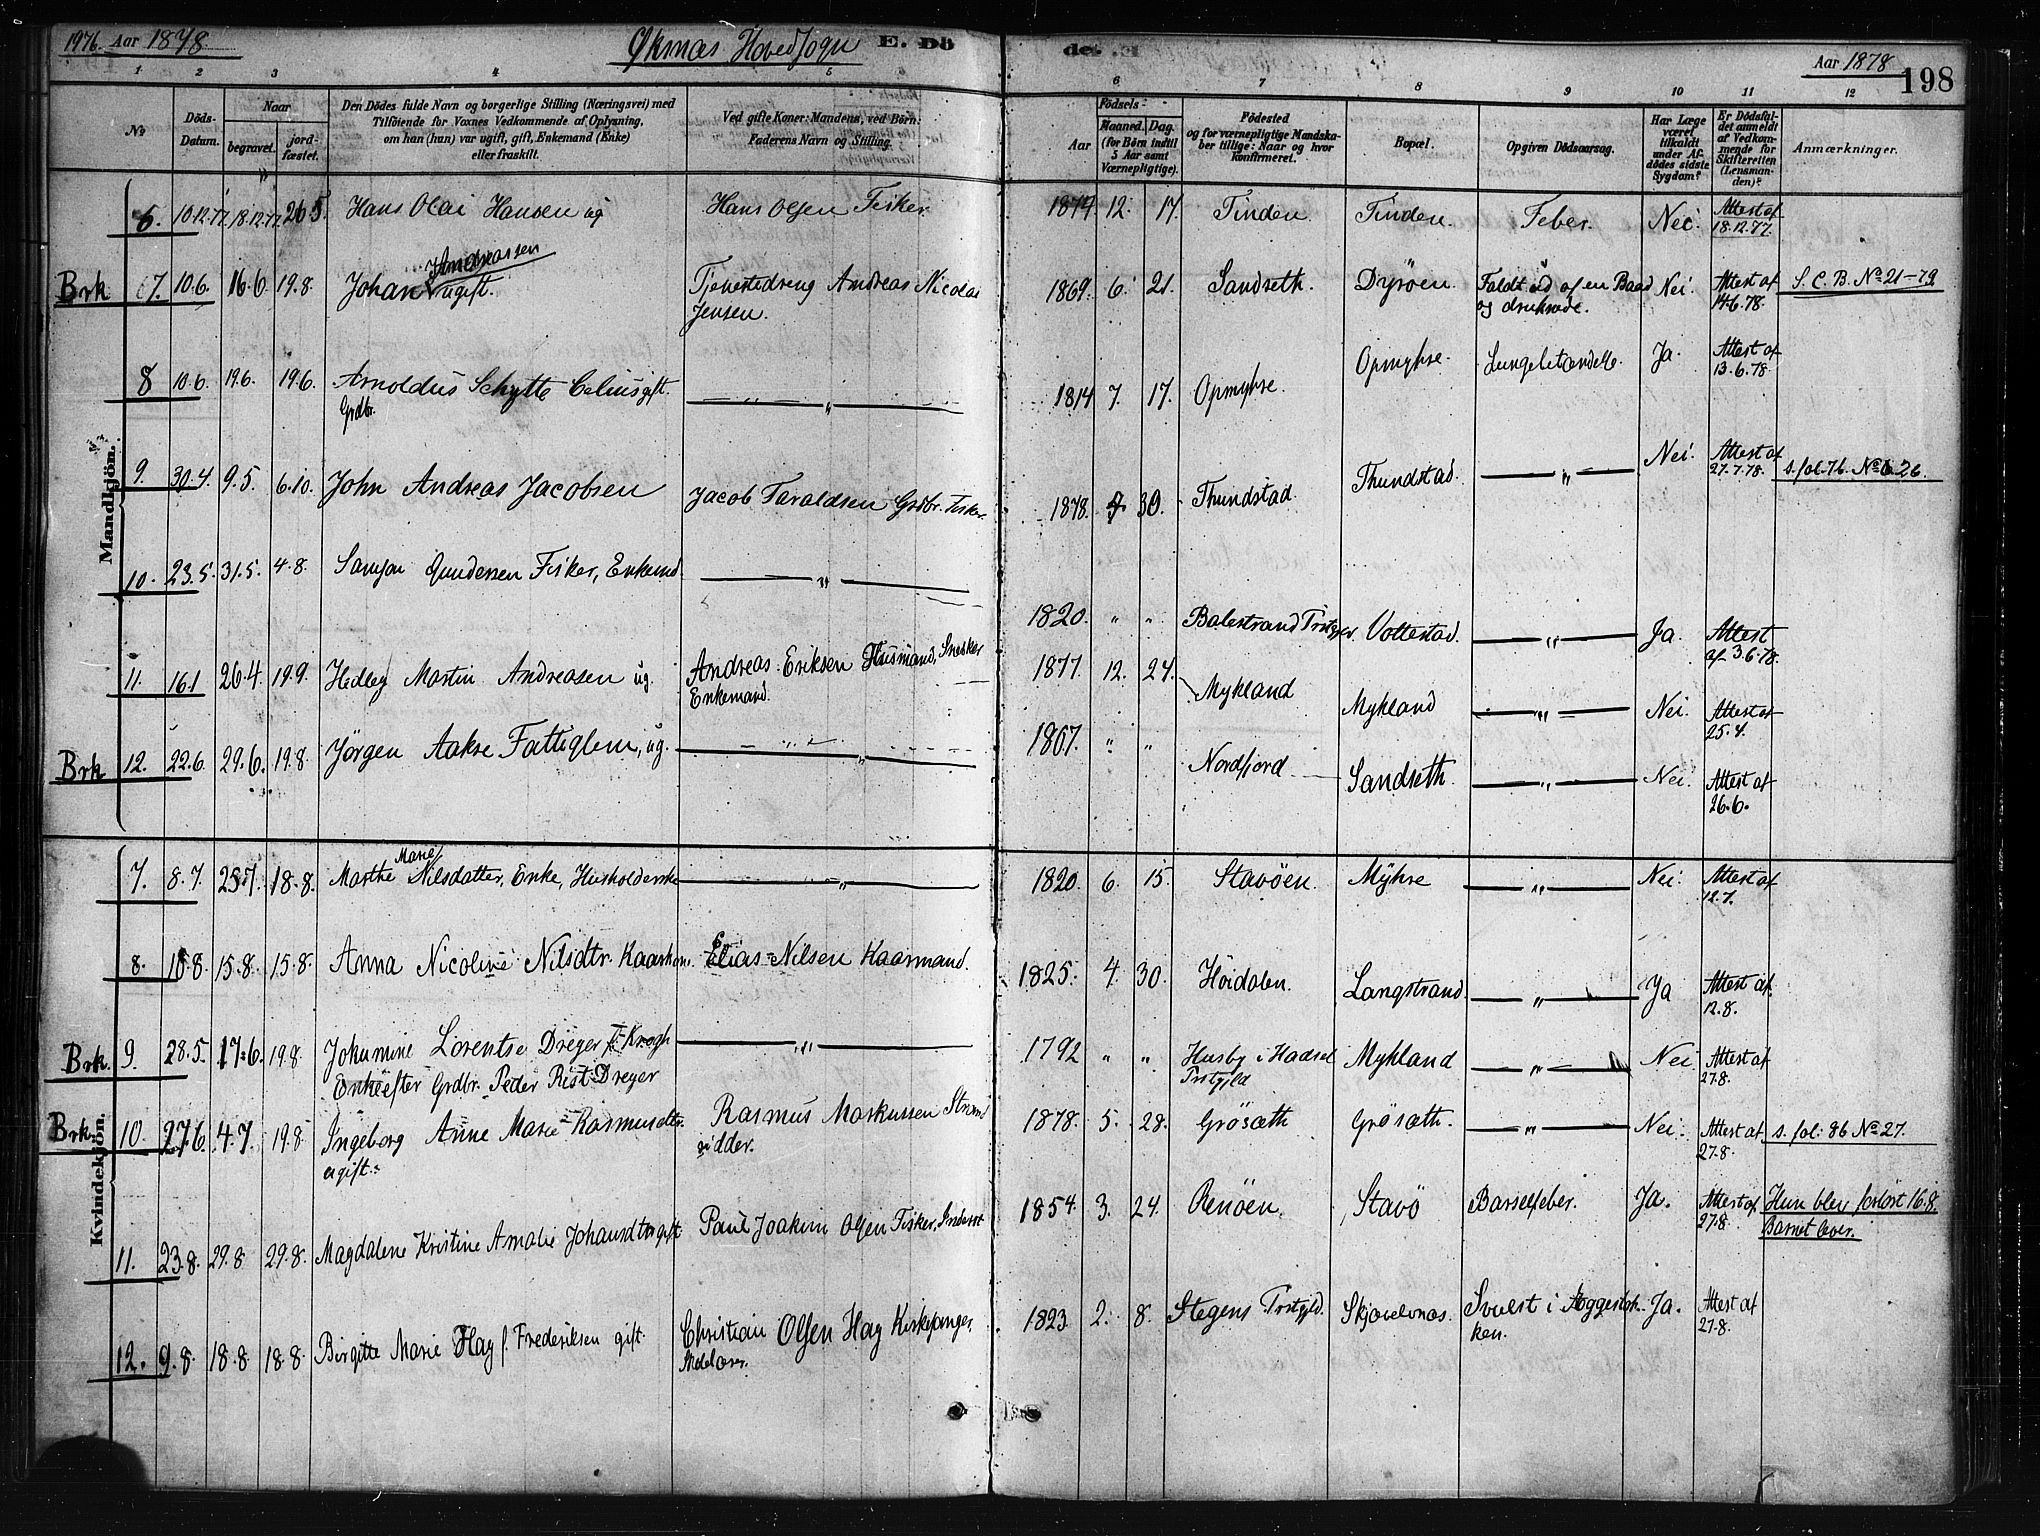 197b. Aar 1878
Øksnæs Hovedsogn E. Dö
de.
Aar 1878
198
1 2 3 4 5 6
6 7 8 9 10 11 12
No
Döds-Datum.
Naar
begravet.
jordfæstet.
Den Dödes fulde Navn og borgerlige Stilling (Næringsvei) med
Tilföiende for Voxnes Vedkommende af Oplysning,
om han (hun) var ugift, gift, Enkemand (Enke)
eller fraskilt.
Ved gifte Koner: Mandens, ved Börn:
Faderens Navn og Stilling.
Födsels-
Aar
Maaned. Dag.
(for Börn indtil
5 Aar samt
Værnepligtige).
Födested
og for værnepligtige Mandska-
ber tillige: Naar og hvor
konfirmeret.
Bopæl.
Opgiven Dödsaarsag.
Har Læge
været
tilkaldt
under Af-
dödes sidste
Sygdom?
Er Dödsfal-
det anmeldt
af Vedkom-
mende for
Skifteretten
(Lensman-
den)?
Anmærkninger.
Mandkjön.
6. 10.12.77. 18.12.77. 26.5 Hans Olai Hansen ug Hans Olsen Fisker. 1874 12. 17. Tinden. Tinden. Feber. Nei. Attest af 18.12.77.
Brk 7. 10.6. 16.6 19.8. Johan Andreassen ugift. Tjenestedreng Andreas Nicolai Jensen. 1869. 6. 21. Sandseth. Dyröen. Faldt ud af en Baad og druknede. Nei. Attest af 14.6.78. S. C. B. No 21-79
8 10.6. 19.6. 19.6. Arnoldus Schytte Celius gift. Grdbr. — " — 1814 7. 17. Opmyhre. Opmyhre. Lungebetændelse. Ja. Attest af 13.6.78.
9. 30.4. 9.5. 6.10. John Andreas Jacobsen Jacob Taraldsen Grdbr. Fisker. 1878. 30. Thundstad. Thundstad. — " — Nei. Attest af 27.7.78. s. fol. 76. No 26.
10. 23.5. 31.5. 4.8. Samson Gundersen Fisker, Enkemd. — " — 1820. " " Balestrand Prstgjd. Vottestad. — " — Ja. Attest af 3.6.78.
11. 16.1 26.4. 19.9. Hedley Martin Andreasen ug. Andreas Eriksen Husmand, Snekker Enkemand. 1877. 12. 24. Mykland Mykland — " — Nei. Attest af 25.4.
Brk 12. 22.6. 29.6. 19.8. Jørgen Aakre Fattiglem, ug. — " — 1807. " " Nordfjord Sandseth. — " — Nei. Attest af 26.6.
Kvindekjön.
7. 8.7. 25.7. 18.8. Marthe Marie Nilsdatter, Enke, Husholderske — " — 1820. 6. 15. Stavöen. Myhre — " — Nei. Attest af 12.7.
8. 10.8. 15.8. 15.8. Anna Nicoline Nilsdtr. Kaarkone. Elias Nilsen Kaarmand. 1825. 4. 30. Höidalen. Langstrand. — " — Ja Attest af. 12.8.
Brk. 9. 28.5. 17.6. 19.8. Johumine Lorentse Dreyer f. Krogh Enke efter Grdbr. Peder Rist Dreyer — " — 1792 " " Husby i Hadsel Prstgjld Mykland — " — Nei Attest af 27.8.
Brk. 10. 27.6. 4.7. 19.8. Ingeborg Anne Marie Rasmusdtr. ugift. Rasmus Markussen Strandsidder. 1878. 5. 28. Grösæth Grösæth. — " — Nei. Attest af 27.8. s. fol: 86 No 27.
11. 23.8. 29.8 29.8. Magdalene Kristine Amalie Johansdtr gift Paul Joakim Olsen Fisker, Inderst 1854. 3. 24. Renöen. Stavö Barselfeber. Ja. Attest af 27.8. Hun blev forløst 16.8. Barnet lever.
12. 9.8. 18.8 18.8. Birgitte Marie Hag f. Frederiksen gift. Christian Olsen Hag Kirkesanger, 1823. 2. 8. Stegens Prstgjld. Skjævelvnæs. Svulst i Æggestokken. Ja. Attest af 27.8.